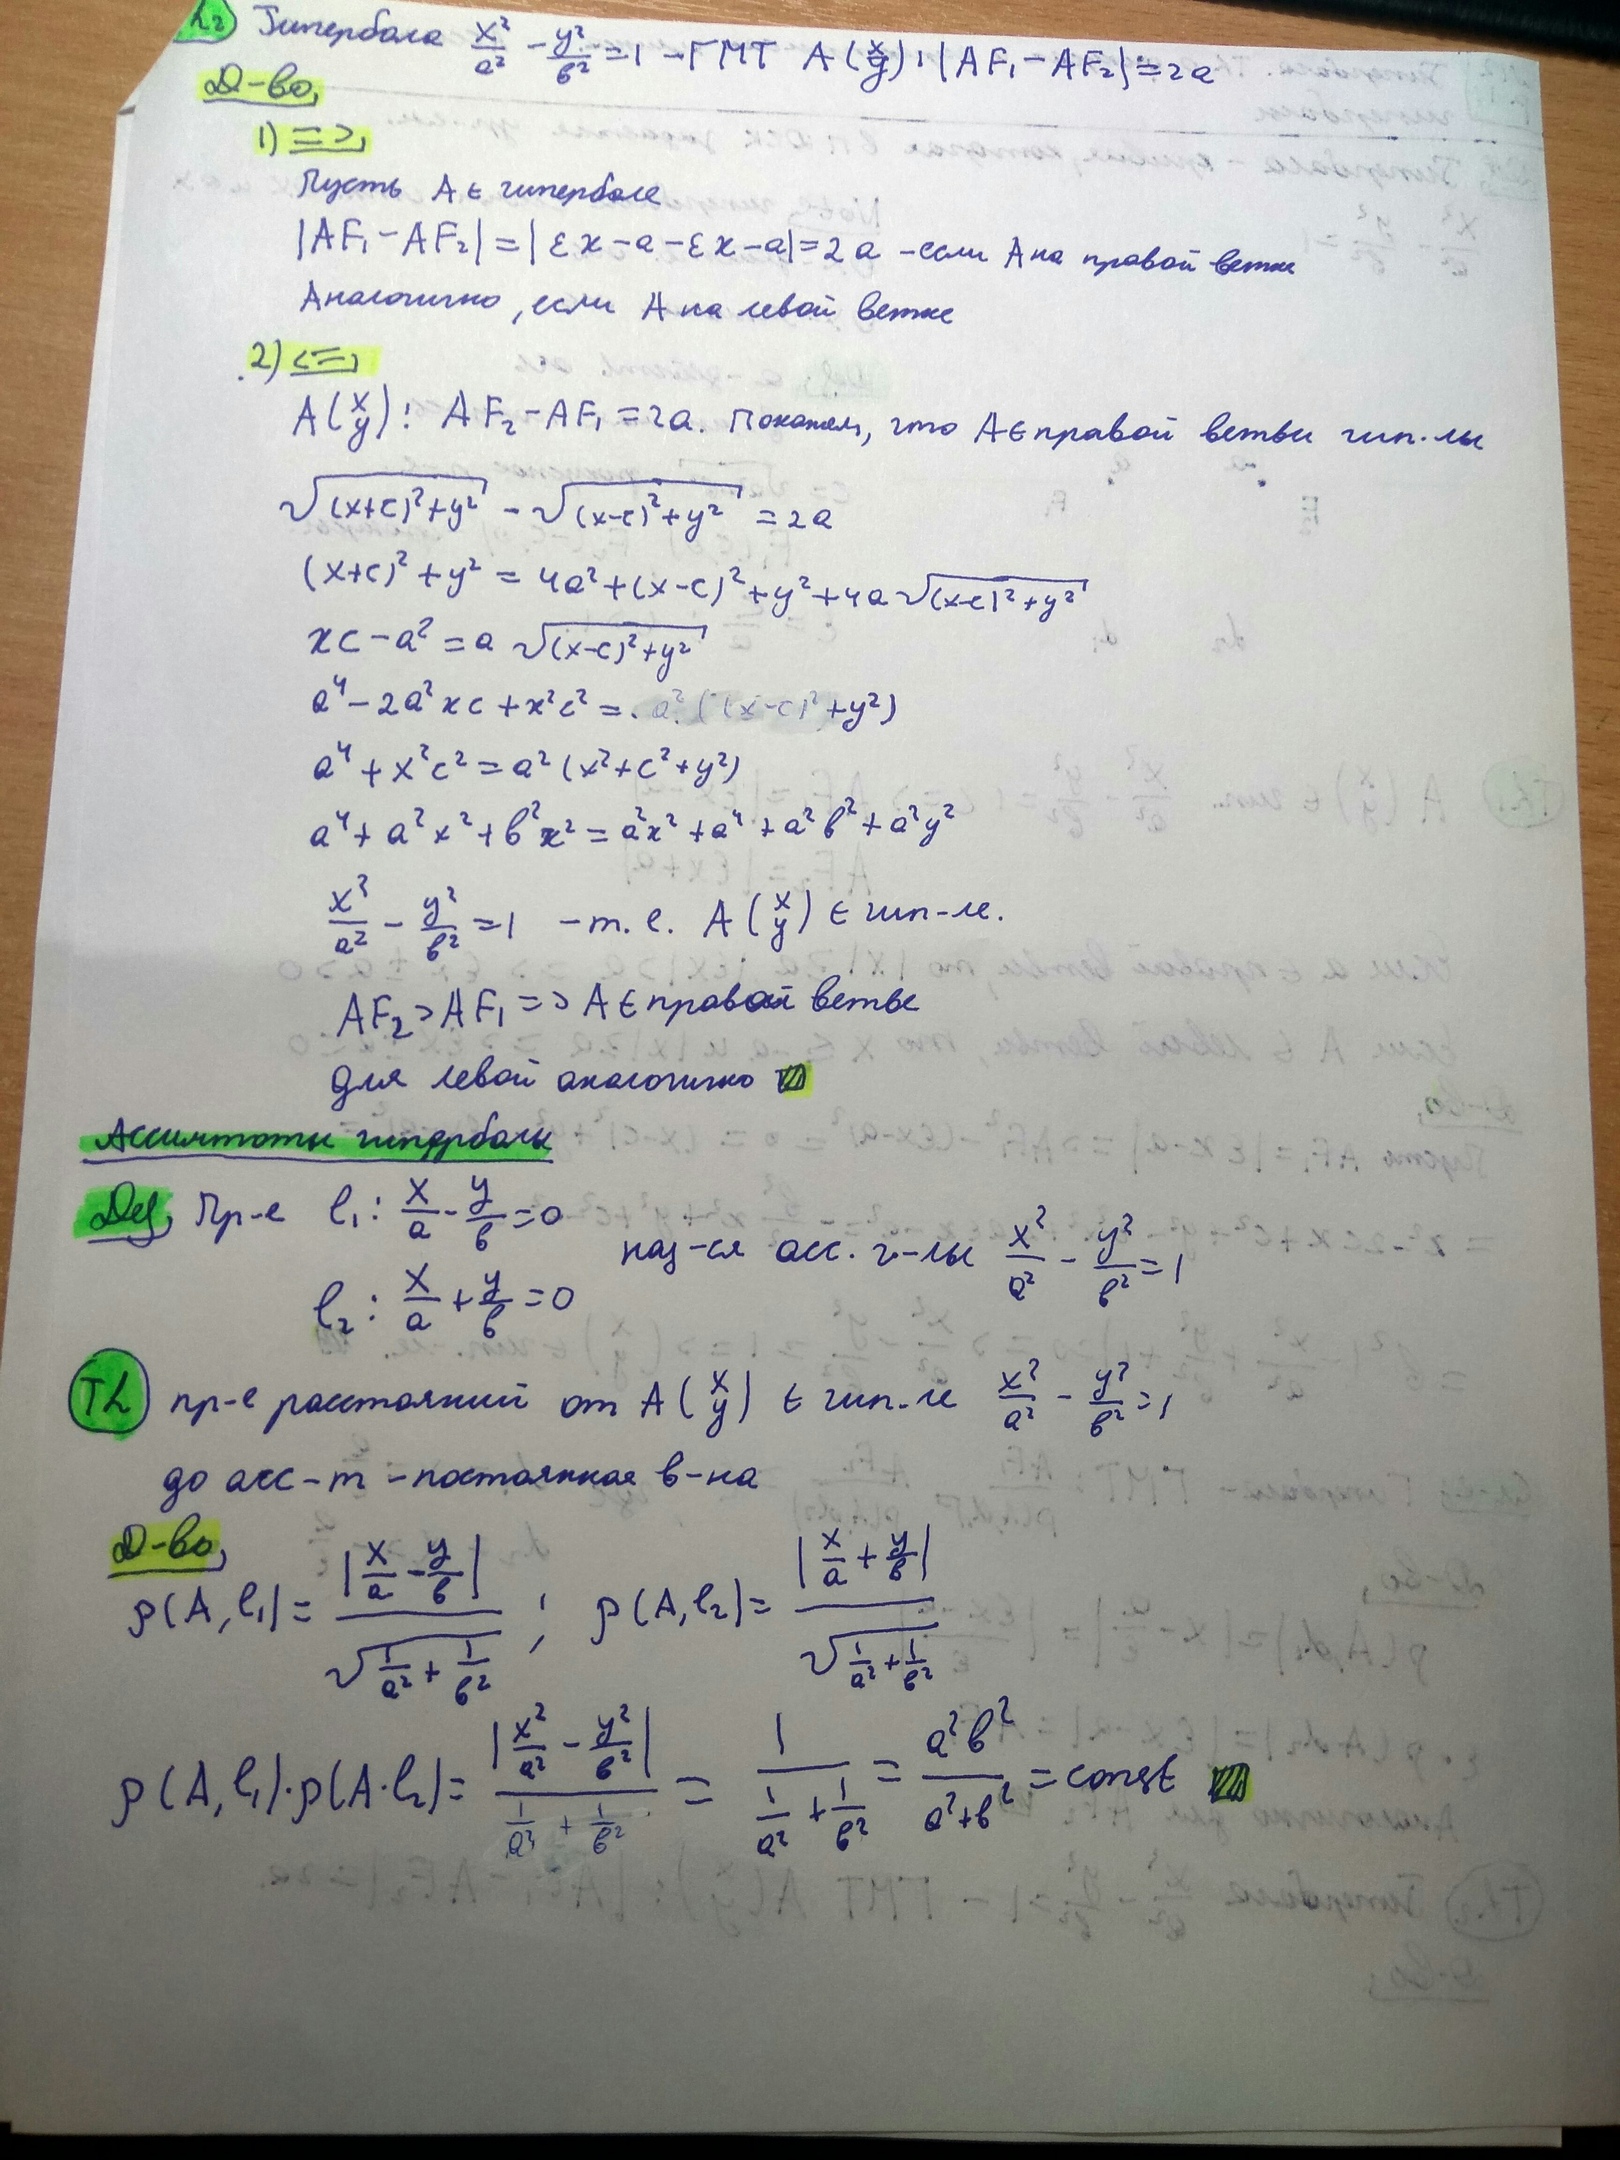 Гипербола x²/a² - y²/b² = 1 - ГМТ A(x y): |AF₁ - AF₂| = 2a
Д-во,
1) =>,
Пусть A ∈ гиперболе
|AF₁ - AF₂| = |εx - a - εx - a| = 2a - если A на правой ветке
Аналогично, если A на левой ветке
2) <=,
A(x y): AF₂ - AF₁ = 2a. Покажем, что A ∈ правой ветви гип-лы
√((x+c)² + y²) - √((x-c)² + y²) = 2a
(x+c)² + y² = 4a² + (x-c)² + y² + 4a√((x-c)² + y²)
xc - a² = a√((x-c)² + y²)
a⁴ - 2a²xc + x²c² = a²((x-c)² + y²)
a⁴ + x²c² = a²(x² + c² + y²)
a⁴ + a²x² + b²x² = a²x² + a⁴ + a²b² + a²y²
x²/a² - y²/b² = 1 - т.е. A(x y) ∈ гип-ле.
AF₂ > AF₁ => A ∈ правой ветве
для левой аналогично
Ассимптоты гиперболы
Def, Пр-е l₁: x/a - y/b = 0
наз-ся асс. г-лы x²/a² - y²/b² = 1
l₂: x/a + y/b = 0
Th пр-е расстояний от A(x y) ∈ гип-ле x²/a² - y²/b² = 1
до асс-т - постоянная в-на
Д-во,
ρ(A, l₁) = |x/a - y/b| / √(1/a² + 1/b²) ; ρ(A, l₂) = |x/a + y/b| / √(1/a² + 1/b²)
ρ(A, l₁)·ρ(A·l₂) = |x²/a² - y²/b²| / (1/a² + 1/b²) = 1 / (1/a² + 1/b²) = a²b² / (a² + b²) = const